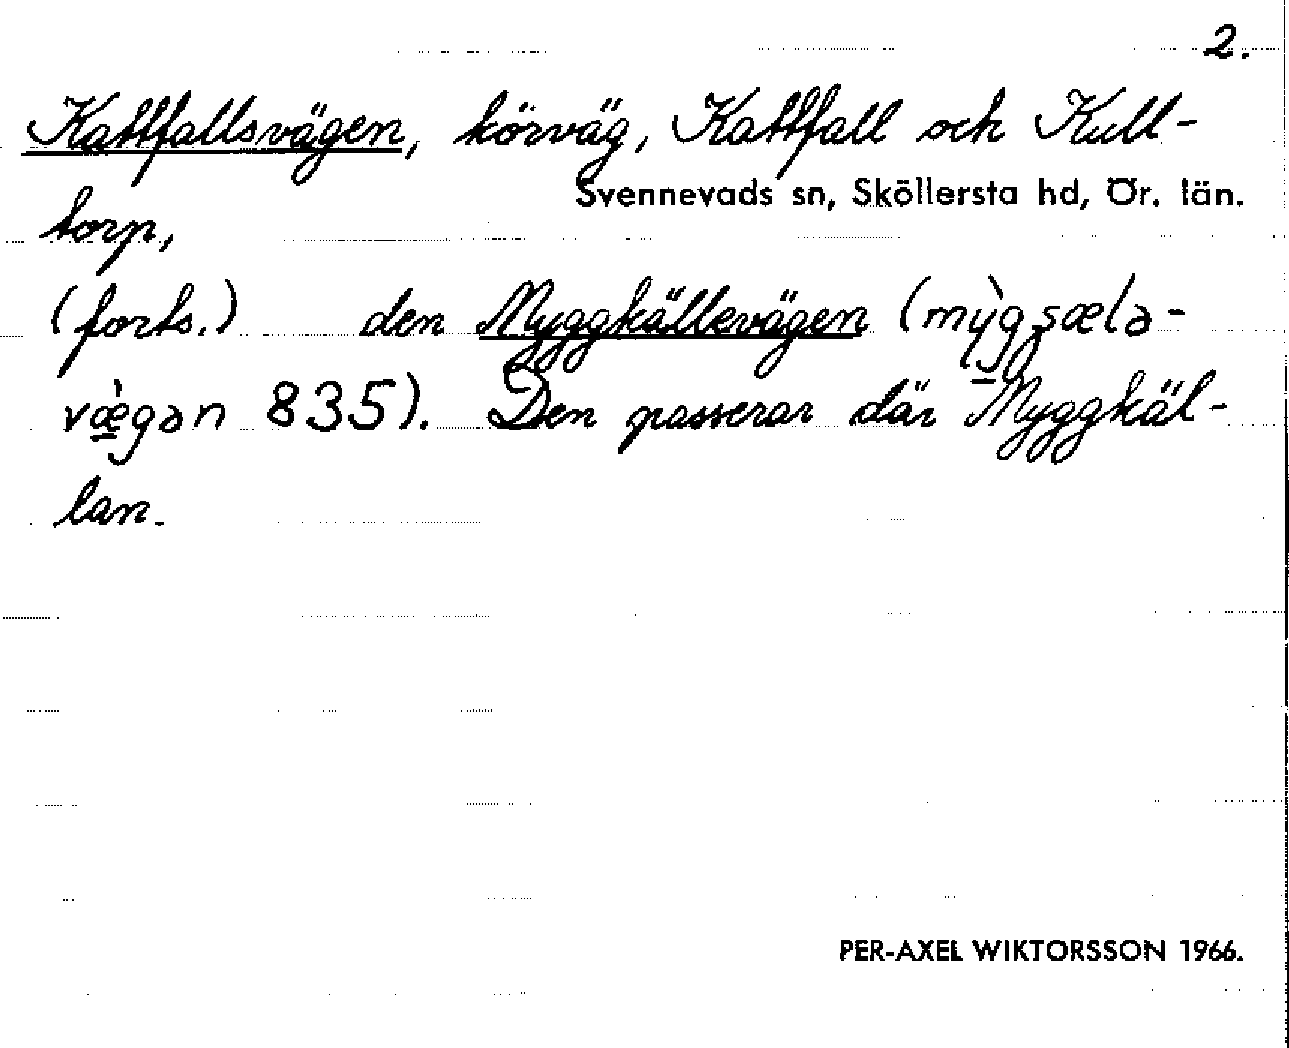 2.
Kattfallsvägen, körväg, Kattfall och Kull-
Svennevads sn, Sköllersta hd, Ör. län.
torp,
(forts.) den Myggkällevägen (mỳgʒælə-
væ̀gən 835). Den passerar där Myggkäl-
lan.
PER-AXEL WIKTORSSON 1966.